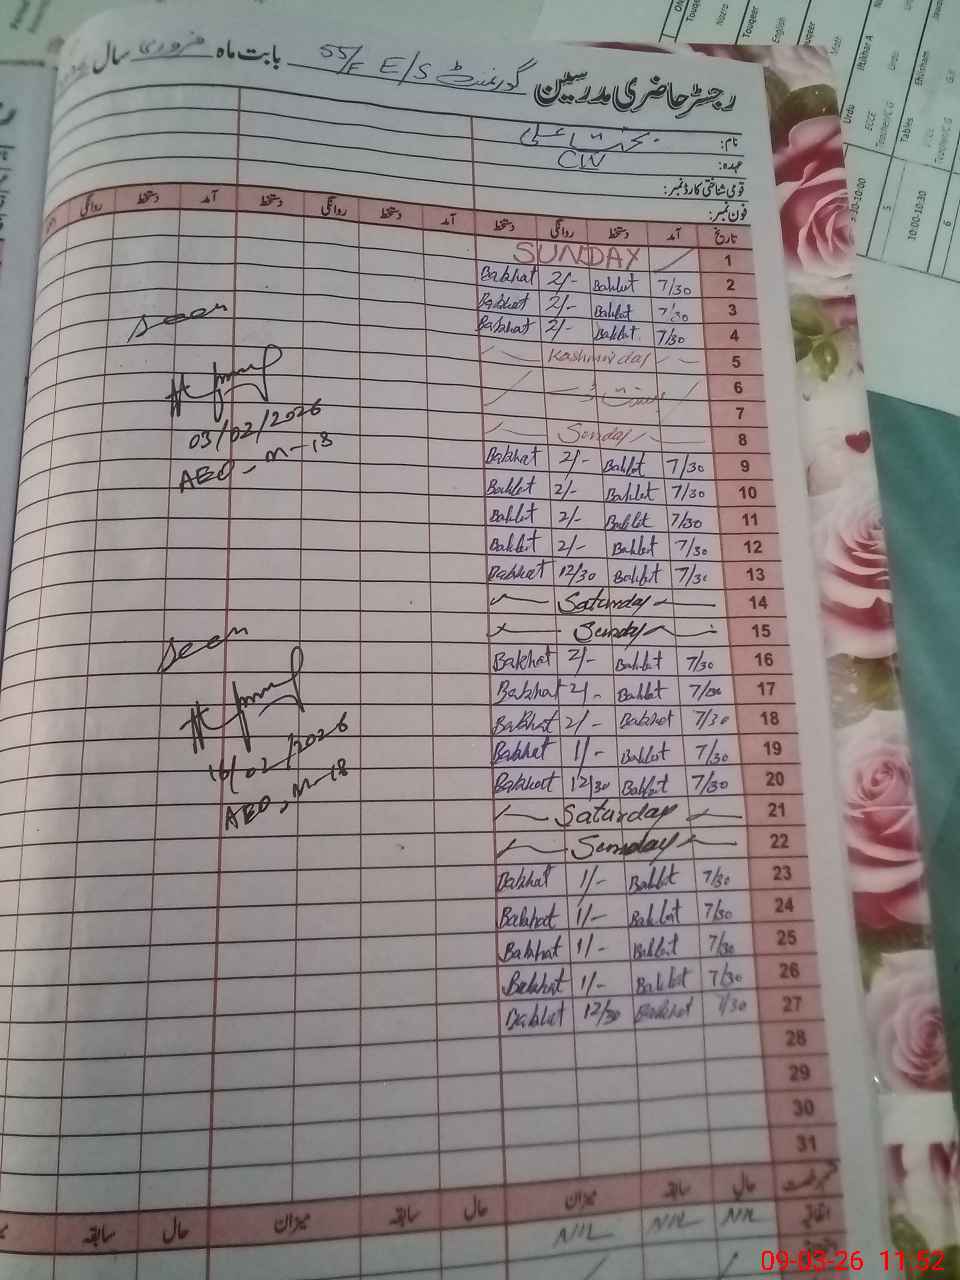 رجسٹر حاضری مدرسین گورنمنٹ E/S 55/F بابت ماہ فروری سال
نام:
عہدہ: CIV
قومی شناختی کارڈ نمبر:
فون نمبر:
تاریخ آمد دستخط روانگی دستخط آمد دستخط روانگی دستخط آمد دستخط روانگی
1 SUNDAY
2 7/30 Bakhat 2/- Bakhat
3 7/30 Bakhat 2/- Bakhat
4 7/30 Bakhat 2/- Bakhat
5 Kashmir day
6
7
8 Sunday
9 7/30 Bakhat 2/- Bakhat
10 7/30 Bakhat 2/- Bakhat
11 7/30 Bakhat 2/- Bakhat
12 7/30 Bakhat 2/- Bakhat
13 7/30 Bakhat 12/30 Bakhat
14 Saturday
15 Sunday
16 7/30 Bakhat 2/- Bakhat
17 7/30 Bakhat 2/- Bakhat
18 7/30 Bakhat 2/- Bakhat
19 7/30 Bakhat 1/- Bakhat
20 7/30 Bakhat 12/30 Bakhat
21 Saturday
22 Sunday
23 7/30 Bakhat 1/- Bakhat
24 7/30 Bakhat 1/- Bakhat
25 7/30 Bakhat 1/- Bakhat
26 7/30 Bakhat 1/- Bakhat
27 7/30 Bakhat 12/30 Bakhat
28
29
30
31
حال سابقہ میزان حال سابقہ میزان حال سابقہ
اتفاقیہ NIL NIL NIL
Seen
03/02/2026
AEO - M-18
Seen
16/02/2026
AEO, M-18
Touqeer
English
Iftikhar A
Urdu
Ehtisham
Urdu
ECCE
Tables
10:00-10:30
5
6
09-03-26 11:52